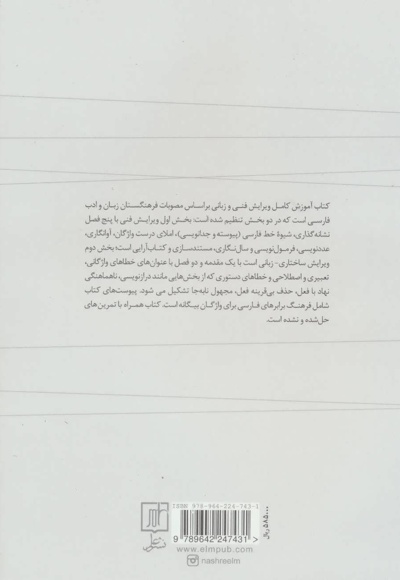 کتاب آموزش کامل ویرایش فنی و زبانی براساس مصوبات فرهنگستان زبان و ادب
فارسی است که در دو بخش تنظیم شده است: بخش اول ویرایش فنی با پنج فصل
نشانه‌گذاری، شیوهٔ خط فارسی (پیوسته و جدانویسی)، املای درست واژگان، آوانگاری،
عددنویسی، فرمول‌نویسی و سال‌نگاری، مستندسازی و کتاب‌آرایی است؛ بخش دوم
ویرایش ساختاری-زبانی است با یک مقدمه و دو فصل با عنوان‌های خطاهای واژگانی،
تعبیری و اصطلاحی و خطاهای دستوری که از بخش‌هایی مانند درازنویسی، ناهماهنگی
نهاد با فعل، حذف بی‌قرینه فعل، مجهول نابه‌جا تشکیل می شود. پیوست‌های کتاب
شامل فرهنگ برابرهای فارسی برای واژگان بیگانه است. کتاب همراه با تمرین‌های
حل‌شده و نشده است.
ISBN 978-964-224-743-1
9 789642 247431 >
۵۸۵۰۰۰ ریال
نشر علم
www.elmpub.com
nashreelm